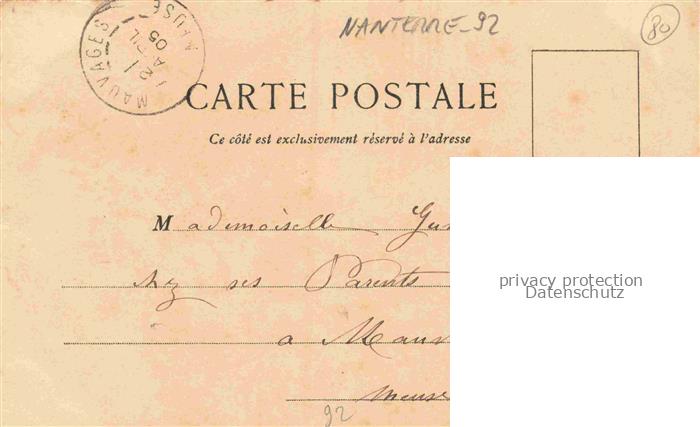 NANTERRE-92
80
MAUVAGES MEUSE
21 AVRIL 05
CARTE POSTALE
Ce côté est exclusivement réservé à l'adresse
Mademoiselle
chez ses Parents
privacy protection
Datenschutz
a Mauv
Meuse
92